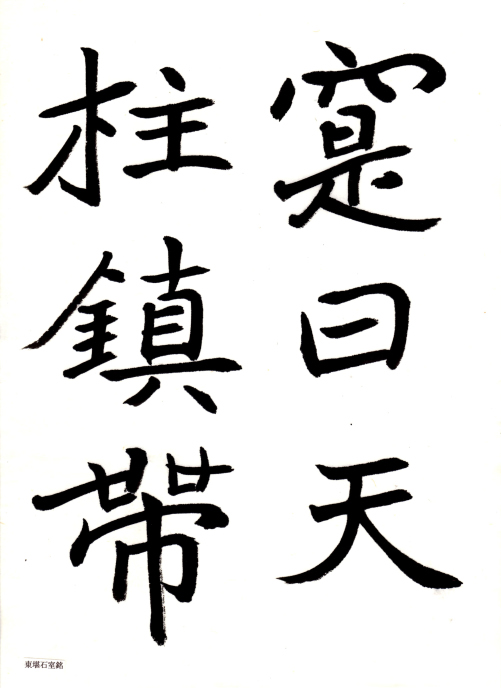 寔曰天
柱鎮帶
東堪石室銘